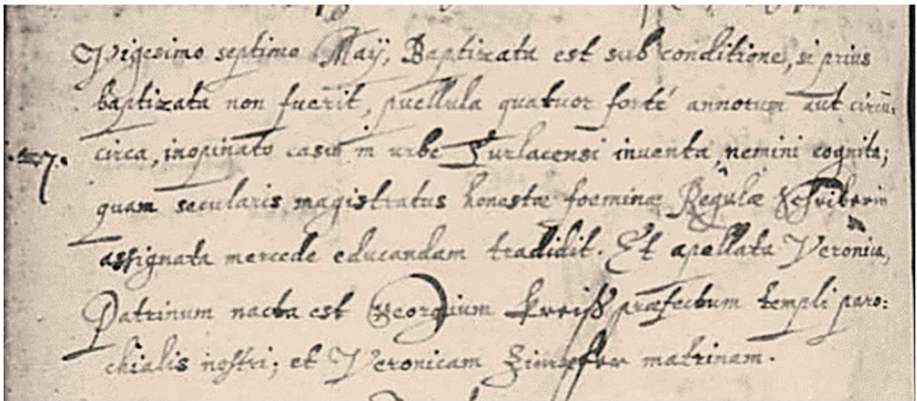 Vigesimo septimo Maÿ, Baptizata est sub conditione, si prius
baptizata non fuerit, puellula quatuor forté annorum aut circu:
27. circa, inopinato casu in urbe Surlacensi inventa, nemini cognita;
quam secularis magistratus honestæ foeminæ Regulæ Schriberin
assignata mercede educandam tradidit. Et apellata Veronica,
Patrinum nacta est Georgium præfectum templi paro:
chialis nostri; et Veronicam matrinam.